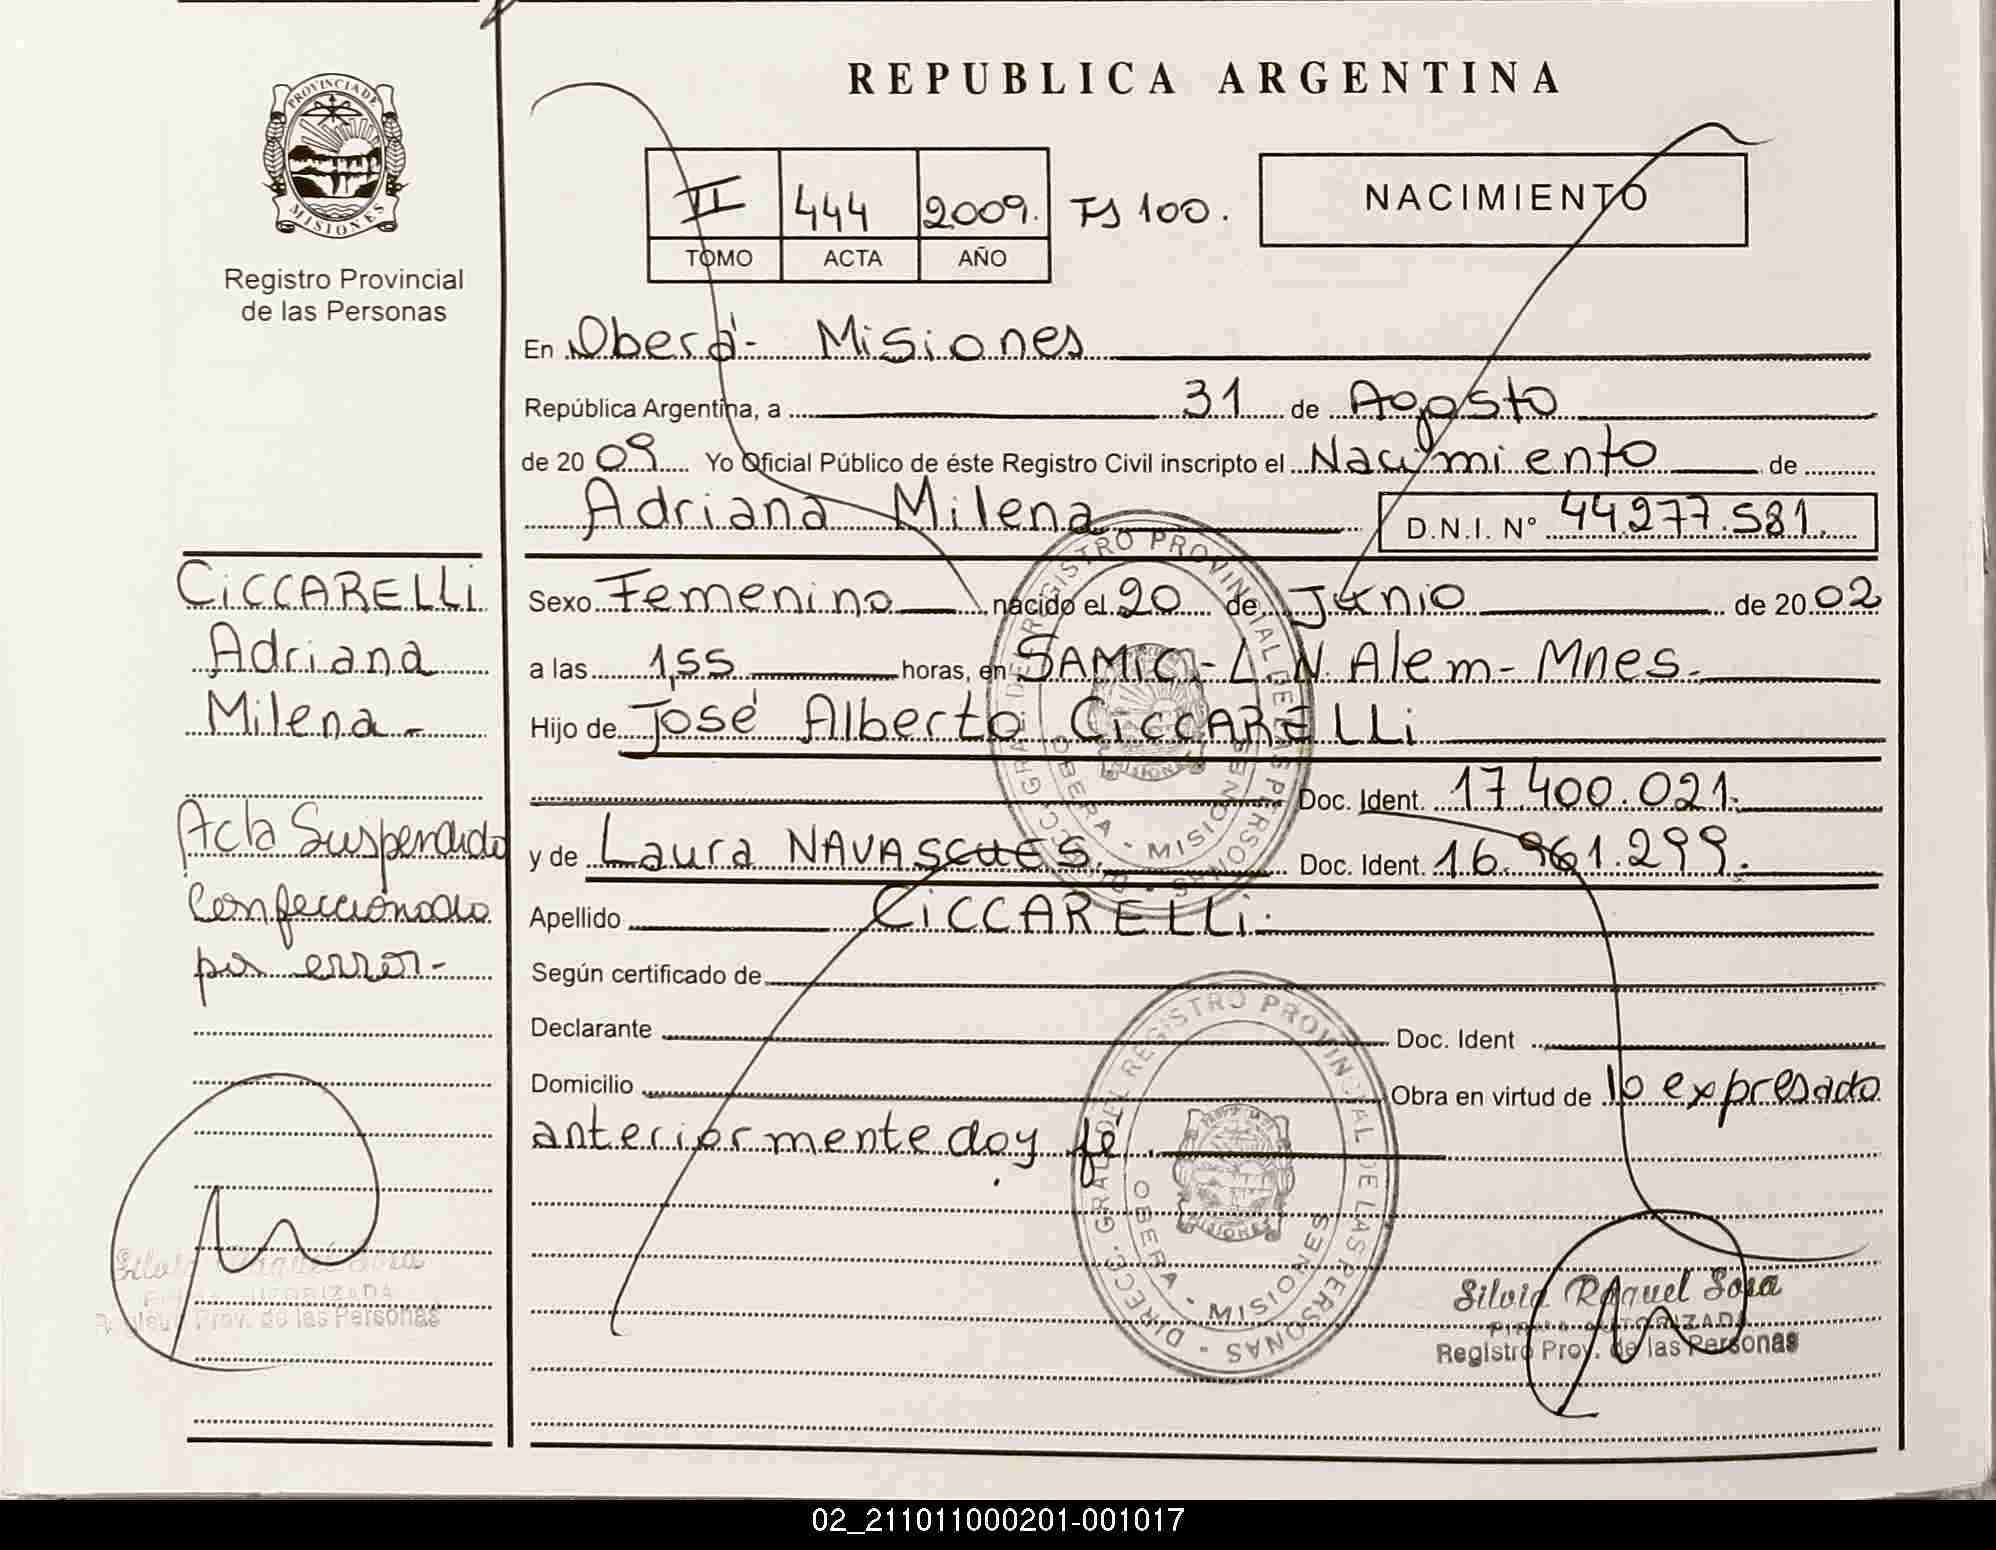 REPUBLICA ARGENTINA
PROVINCIA DE
MISIONES
Registro Provincial
de las Personas
II 444 2009. Fs 100.
TOMO ACTA AÑO
NACIMIENTO
En Oberá- Misiones
República Argentina, a 31 de Agosto
de 2009 Yo Oficial Público de éste Registro Civil inscripto el Nacimiento de
Adriana Milena D.N.I. N° 44.277.581.
CiCCARELLi
Adriana
Milena.-
Acta Suspendido
Confeccionado
por error-
Sexo Femenino nacido el 20 de Junio de 2002
a las 1,55 horas, en SAMIC.- L.N. Alem- Mnes.
Hijo de José Alberto CiCCARELLi
Doc. Ident. 17.400.021.
y de Laura NAVASCUES. Doc. Ident. 16.961.299.
Apellido CiCCARELLi.
Según certificado de
Declarante Doc. Ident
Domicilio Obra en virtud de lo expresado
anteriormente doy fé.
DIRECC. GRAL. DEL REGISTRO PROVINCIAL DE LAS PERSONAS
OBERA - MISIONES
DIRECC. GRAL. DEL REGISTRO PROVINCIAL DE LAS PERSONAS
OBERA - MISIONES
Silvia Raquel Sosa
FIRMA AUTORIZADA
Registro Prov. de las Personas
Silvia Raquel Sosa
FIRMA AUTORIZADA
Registro Prov. de las Personas
02_211011000201-001017